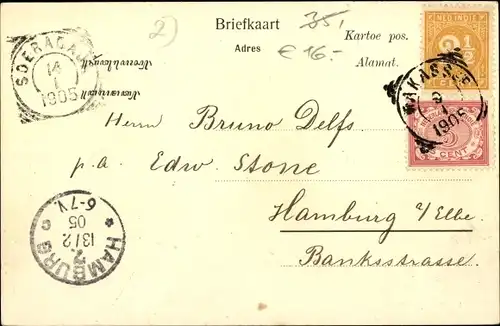 Briefkaart
Kartoe pos.
Adres
Alamat.
2)
35,
€ 16.-
NED. INDIË
2½
CENT
SOERABAJA
14
1
1905
MAKASSER
9
1
1905
5
CENT
Herrn Bruno Delfs.
p.a. Edw. Stone.
Hamburg a/Elbe.
Banksstrasse.
HAMBURG
13/2
05
6-7V.